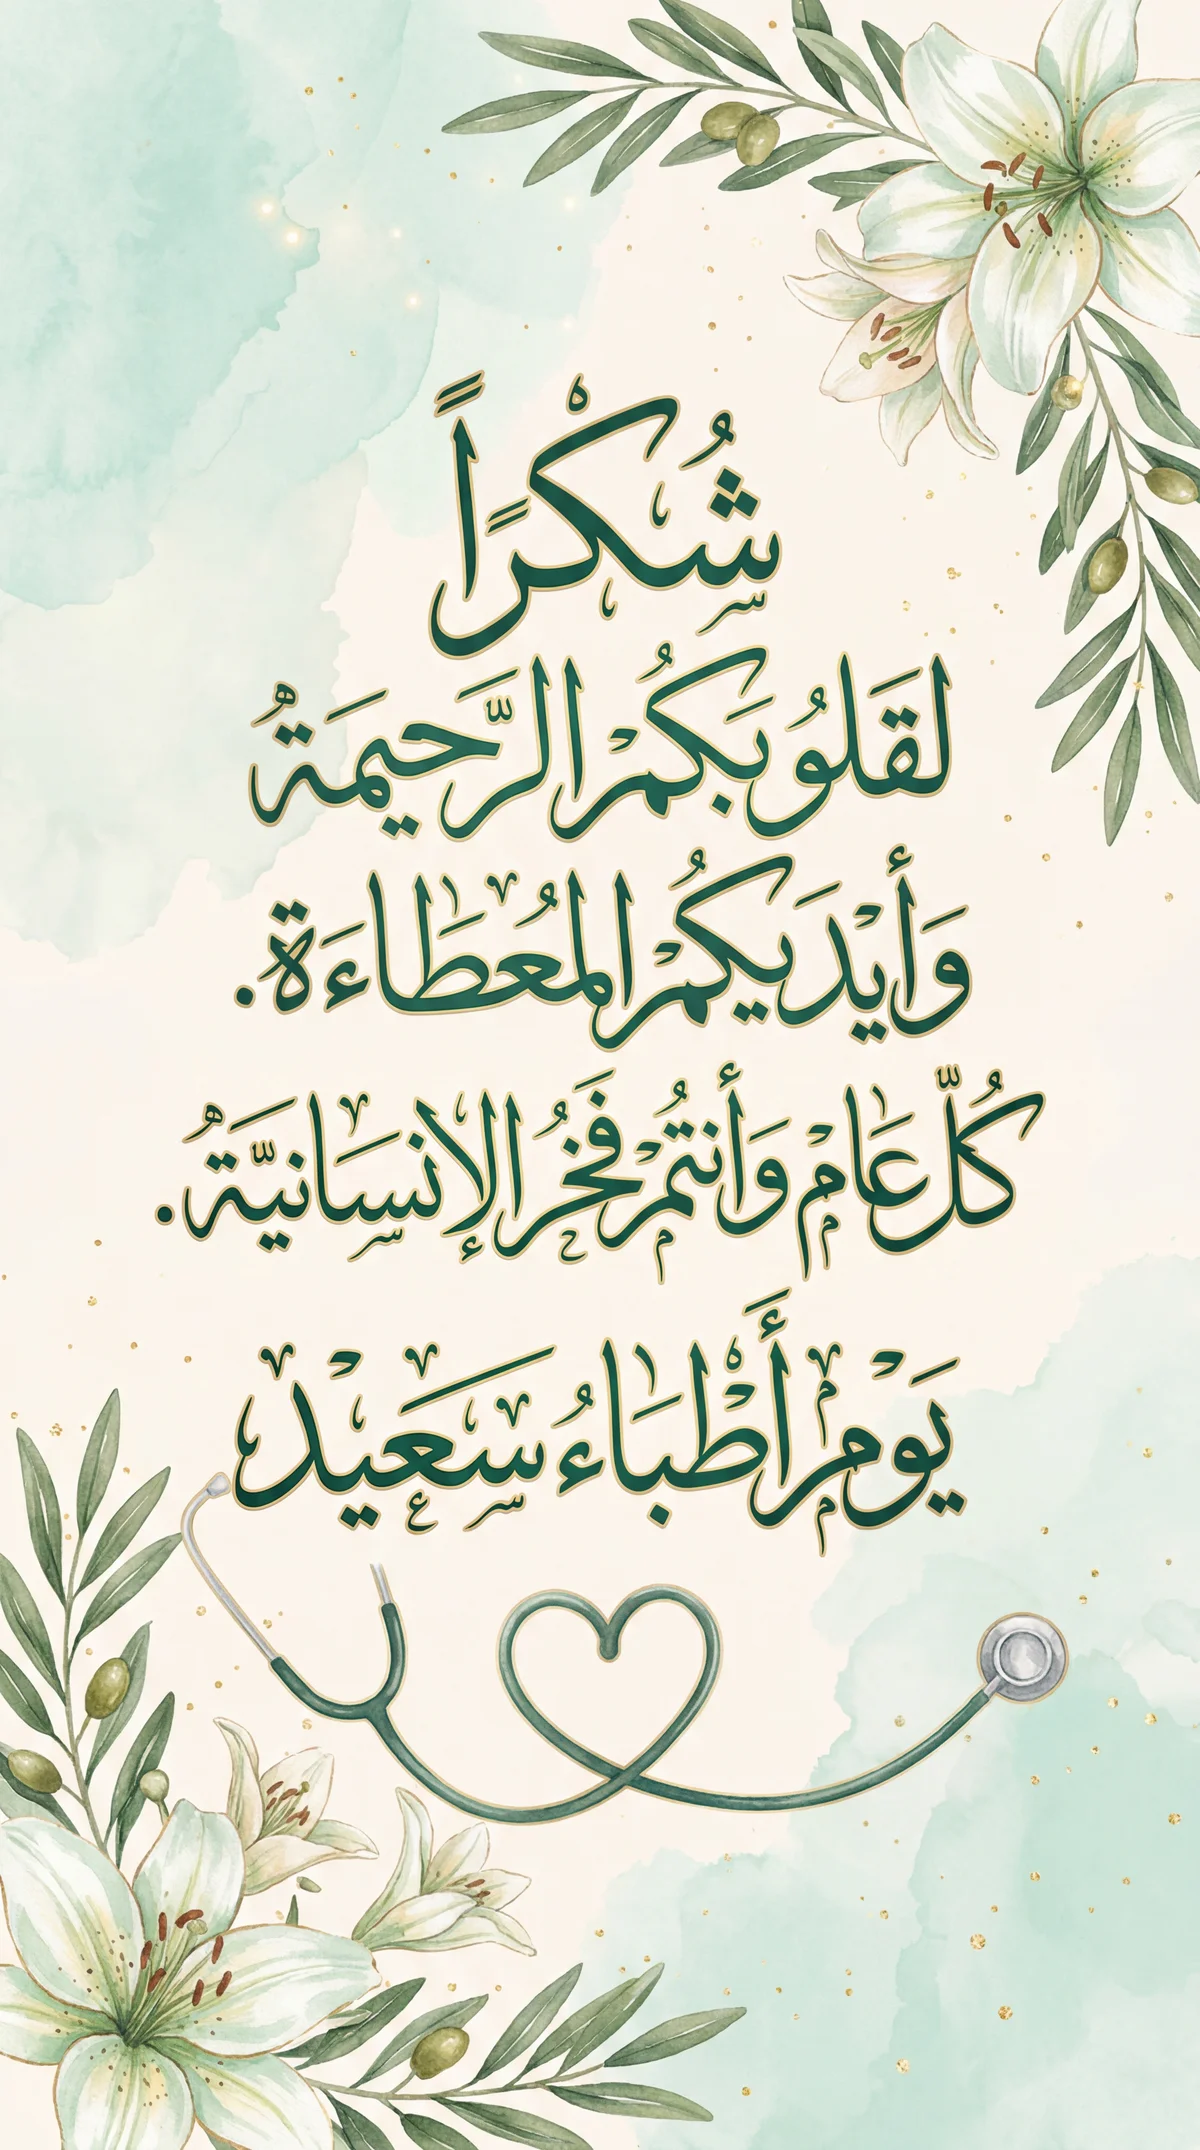 شُكْرًاً
لقَلوُبَكُمْ الرَّحيمَةُ
وَأيْدَيكُمْ المُعطَاءَة.
كُلّ عَام وَأنتُمْ فَخُر الإنسَانيَّةُ.
يَوْم أَطْبَاءُ سَعِيْد